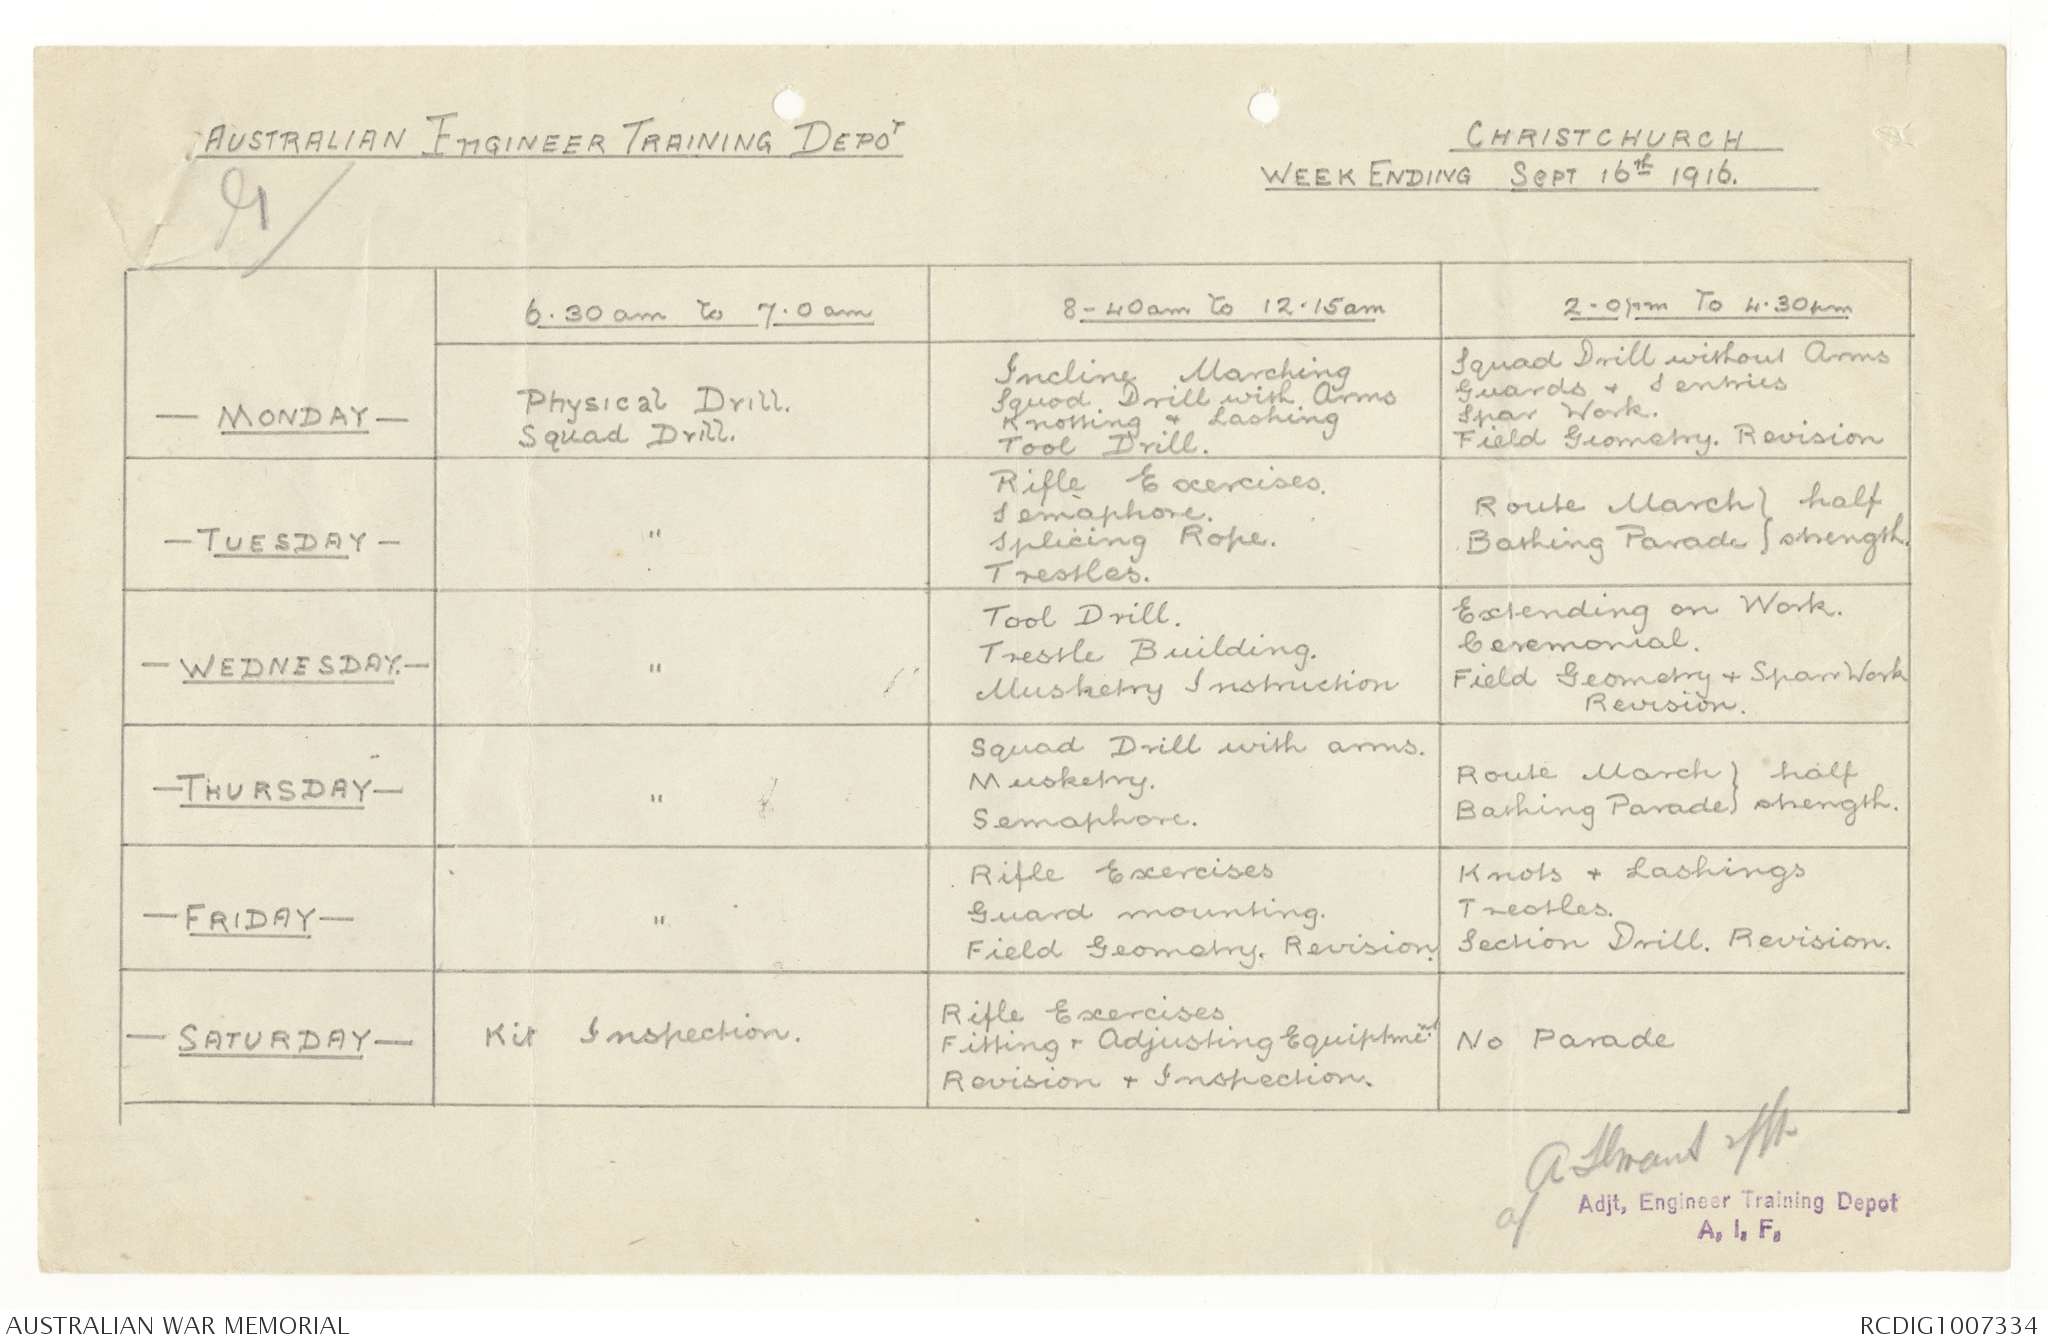 AUSTRALIAN ENGINEER TRAINING DEPOT
CHRISTCHURCH
WEEK ENDIING SEPT 16th 1916.
6.30am to 7.0am
8-40am to 12.15am
2-0pm To 4.30pm
— MONDAY —
Physical Drill.
Squad Drill.
Incline Marching
Squad Drill with Arms
Knotting + Lashing
Tool Drill.
Squad Drill without Arms
Guards + Sentries
Spar Work.
Field Geometry. Revision
— TUESDAY —
"
Rifle Exercises.
Semaphore.
Splicing Rope.
Trestles.
Route March } half
Bathing Parade } strength.
— WEDNESDAY. —
"
Tool Drill.
Trestle Building.
Musketry Instruction
Extending on Work.
Ceremonial.
Field Geometry + Spar Work
Revision.
— THURSDAY —
"
Squad Drill with arms.
Musketry.
Semaphore.
Route March } half
Bathing Parade } strength.
— FRIDAY —
"
Rifle Exercises
Guard mounting.
Field Geometry. Revision.
Knots + Lashings
Trestles.
Section Drill. Revision.
— SATURDAY —
Kit Inspection.
Rifle Exercises
Fitting + Adjusting Equiptment
Revision + Inspection.
No Parade
Adjt, Engineer Training Depot
A. I. F.
AUSTRALIAN WAR MEMORIAL
RCDIG1007334